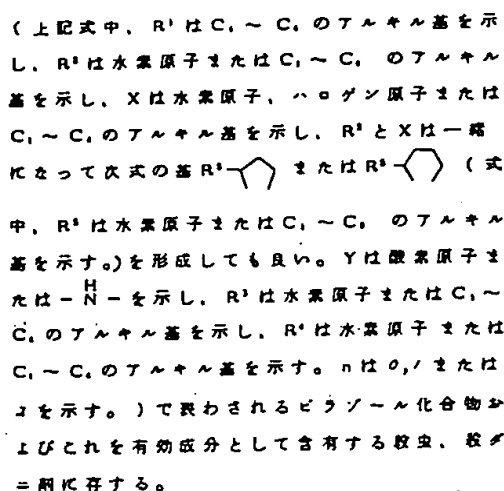 (上記式中、R¹はC₁～C₄のアルキル基を示
し、R²は水素原子またはC₁～C₄ のアルキル
基を示し、Xは水素原子、ハロゲン原子または
C₁～C₄のアルキル基を示し、R²とXは一緒
になって次式の基R⁵ または R⁵ (式
中、R⁵は水素原子またはC₁～C₄ のアルキル
基を示す。)を形成しても良い。Yは酸素原子ま
たは－N－を示し、R³は水素原子またはC₁～
H
C₄のアルキル基を示し、R⁴は水素原子または
C₁～C₄のアルキル基を示す。nは0,1または
2を示す。)で表わされるピラゾール化合物お
よびこれを有効成分として含有する殺虫、殺ダ
ニ剤に存する。